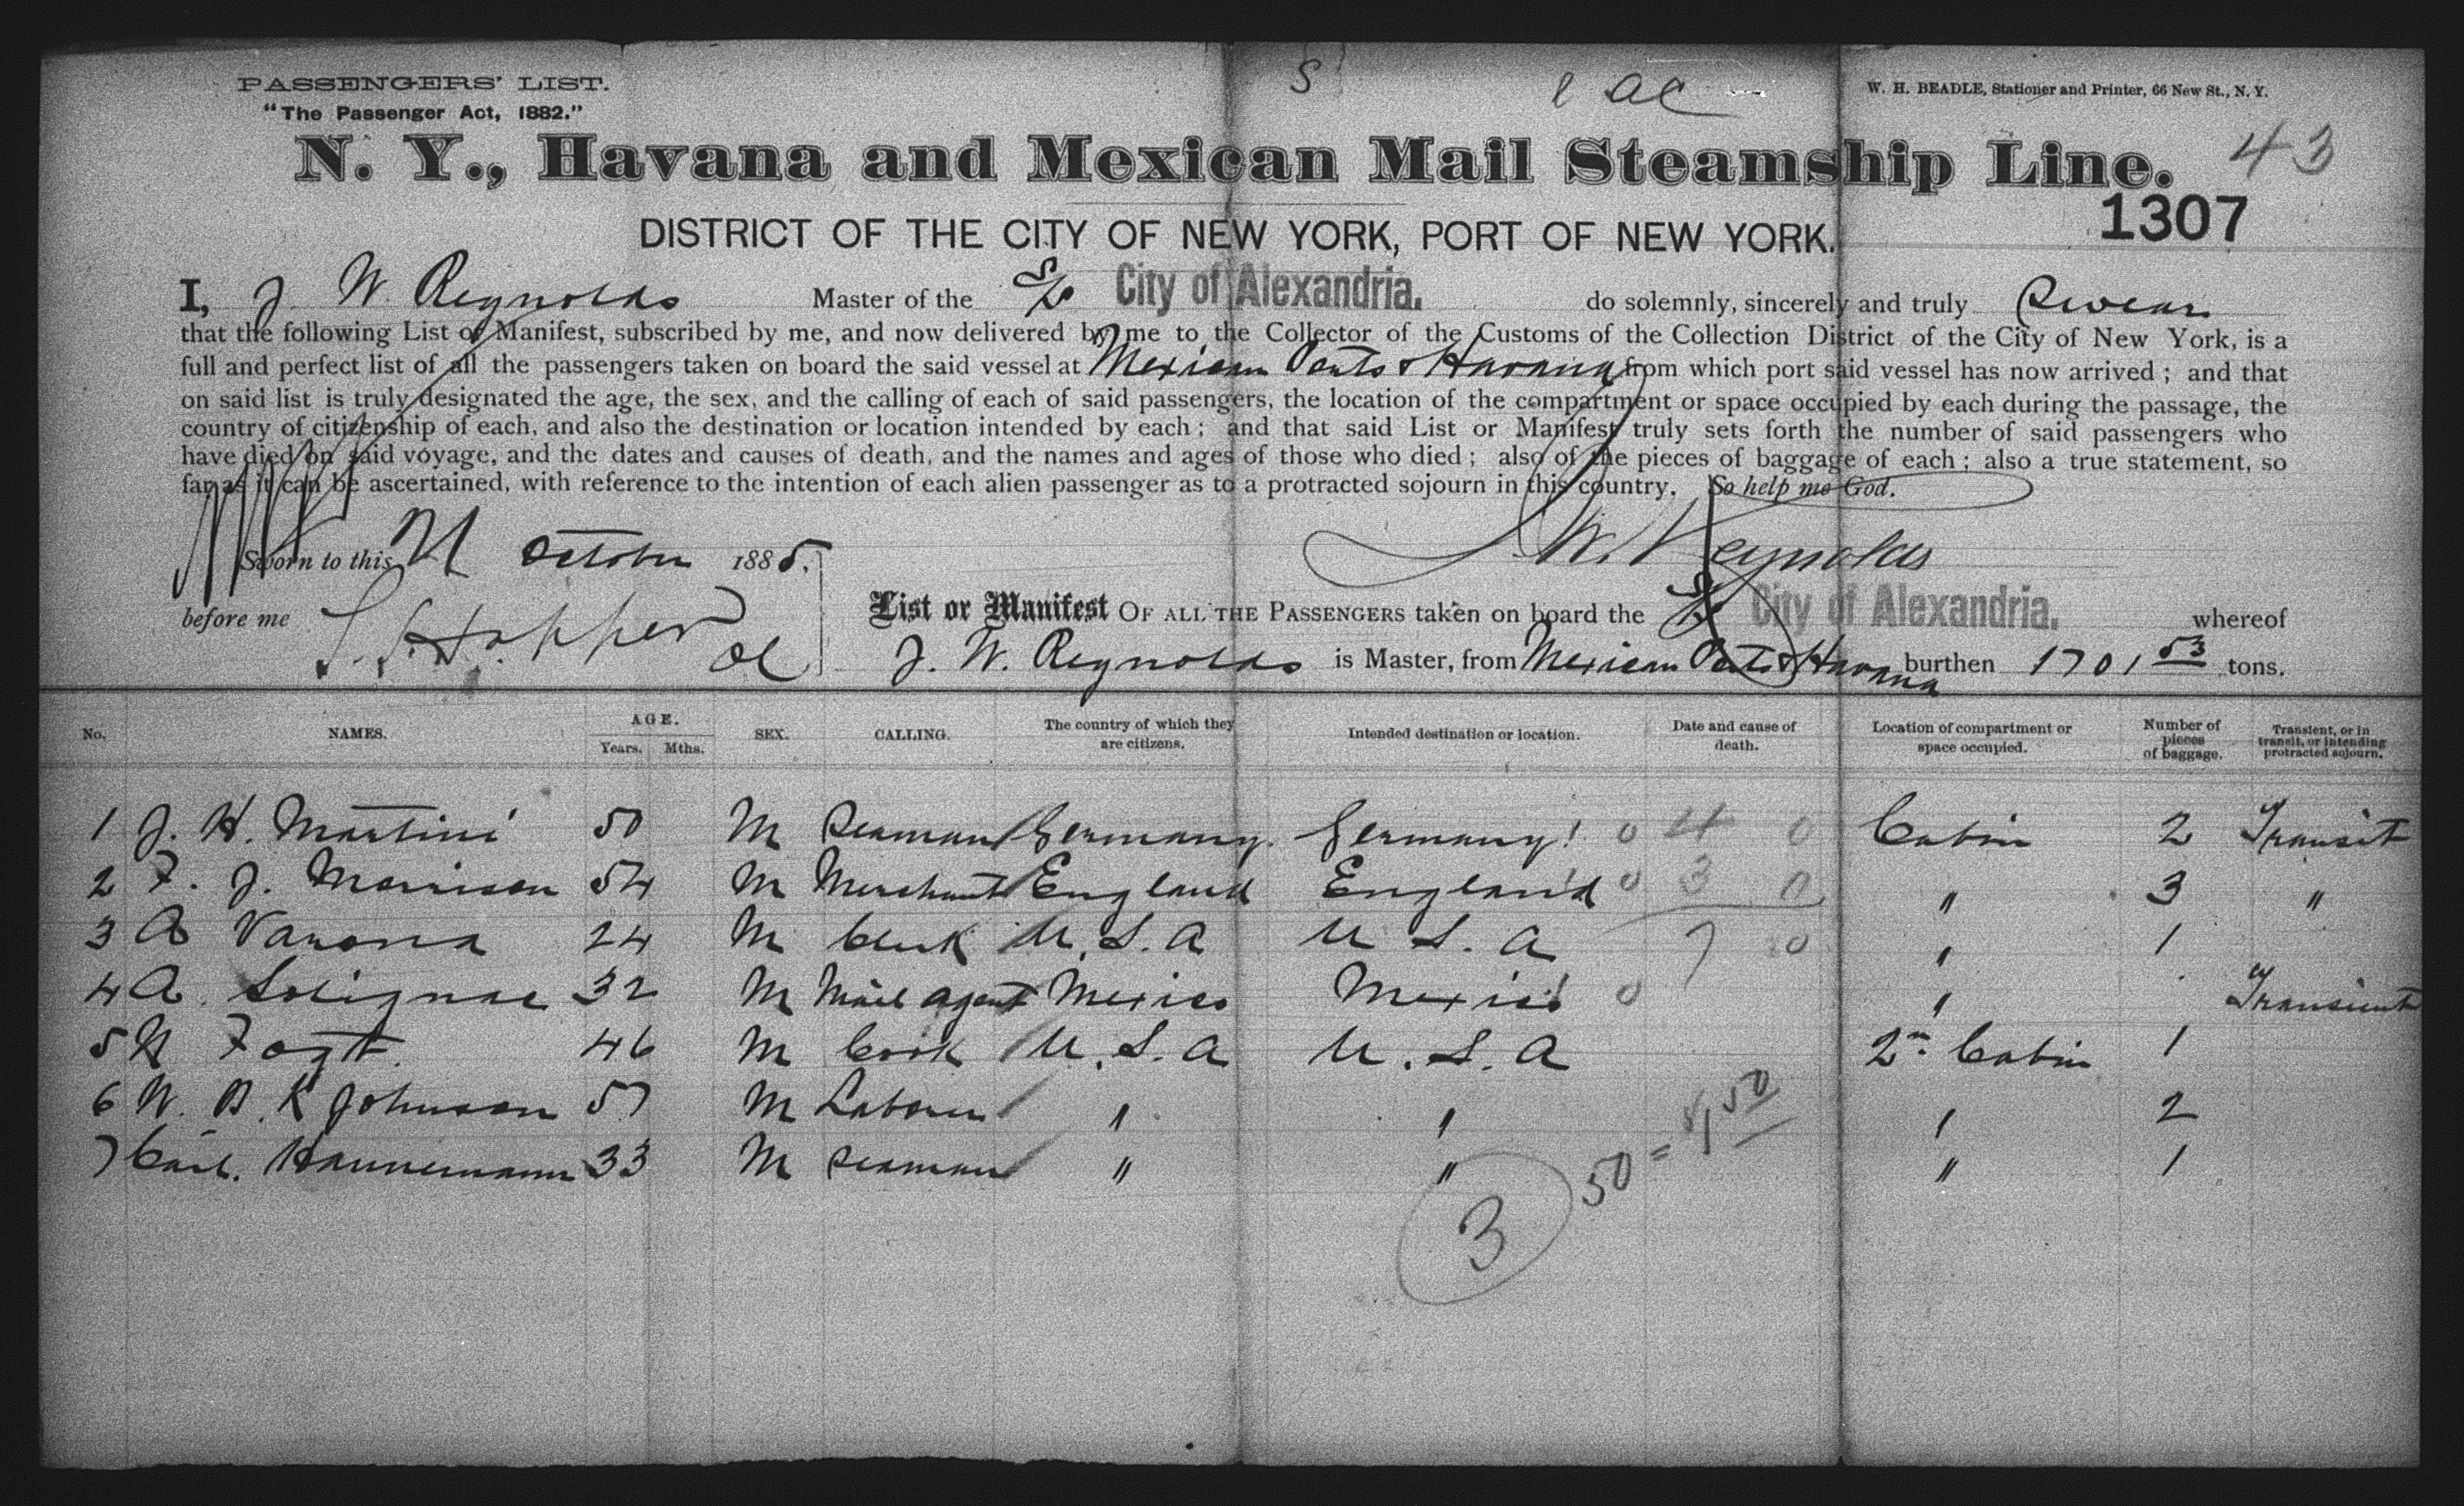 PASSENGERS' LIST.
"The Passenger Act, 1882."
S
W. H. BEADLE, Stationer and Printer, 66 New St., N. Y.
N. Y., Havana and Mexican Mail Steamship Line. 43
1307
DISTRICT OF THE CITY OF NEW YORK, PORT OF NEW YORK.
I, J. W. Reynolds Master of the S/S City of Alexandria. do solemnly, sincerely and truly Swear
that the following List or Manifest, subscribed by me, and now delivered by me to the Collector of the Customs of the Collection District of the City of New York, is a
full and perfect list of all the passengers taken on board the said vessel at Mexican Ports & Havana from which port said vessel has now arrived; and that
on said list is truly designated the age, the sex, and the calling of each of said passengers, the location of the compartment or space occupied by each during the passage, the
country of citizenship of each, and also the destination or location intended by each; and that said List or Manifest truly sets forth the number of said passengers who
have died on said voyage, and the dates and causes of death, and the names and ages of those who died; also of the pieces of baggage of each; also a true statement, so
far as it can be ascertained, with reference to the intention of each alien passenger as to a protracted sojourn in this country. So help me God.
Sworn to this October 1885. J. W. Reynolds
before me Hopper
List or Manifest OF ALL THE PASSENGERS taken on board the S/S City of Alexandria. whereof
J. W. Reynolds is Master, from Mexican Ports & Havana burthen 1701 53 tons.
No. NAMES. AGE. Years. Mths. SEX. CALLING. The country of which they are citizens. Intended destination or location. Date and cause of death. Location of compartment or space occupied. Number of pieces of baggage. Transient, or in transit, or intending protracted sojourn.
1 J. H. Martini 50 M Seaman Germany. Germany 0 4 0 Cabin 2 Transit
2 F. J. Morrison 54 M Merchant England England 0 3 0 " 3 "
3 A Varona 24 M Clerk U. S. A U S. A 7 0 " 1
4 A. Solignac 32 M Mail agent Mexico Mexico 0 " Transient
5 N Fogt. 46 M Cook U. S. A U. S. A 2n Cabin 1
6 W. B. K Johnson 57 M Laborer " " " 2
7 Carl. Hannemann 33 M Seaman " " " 1
3 50 = 1 50